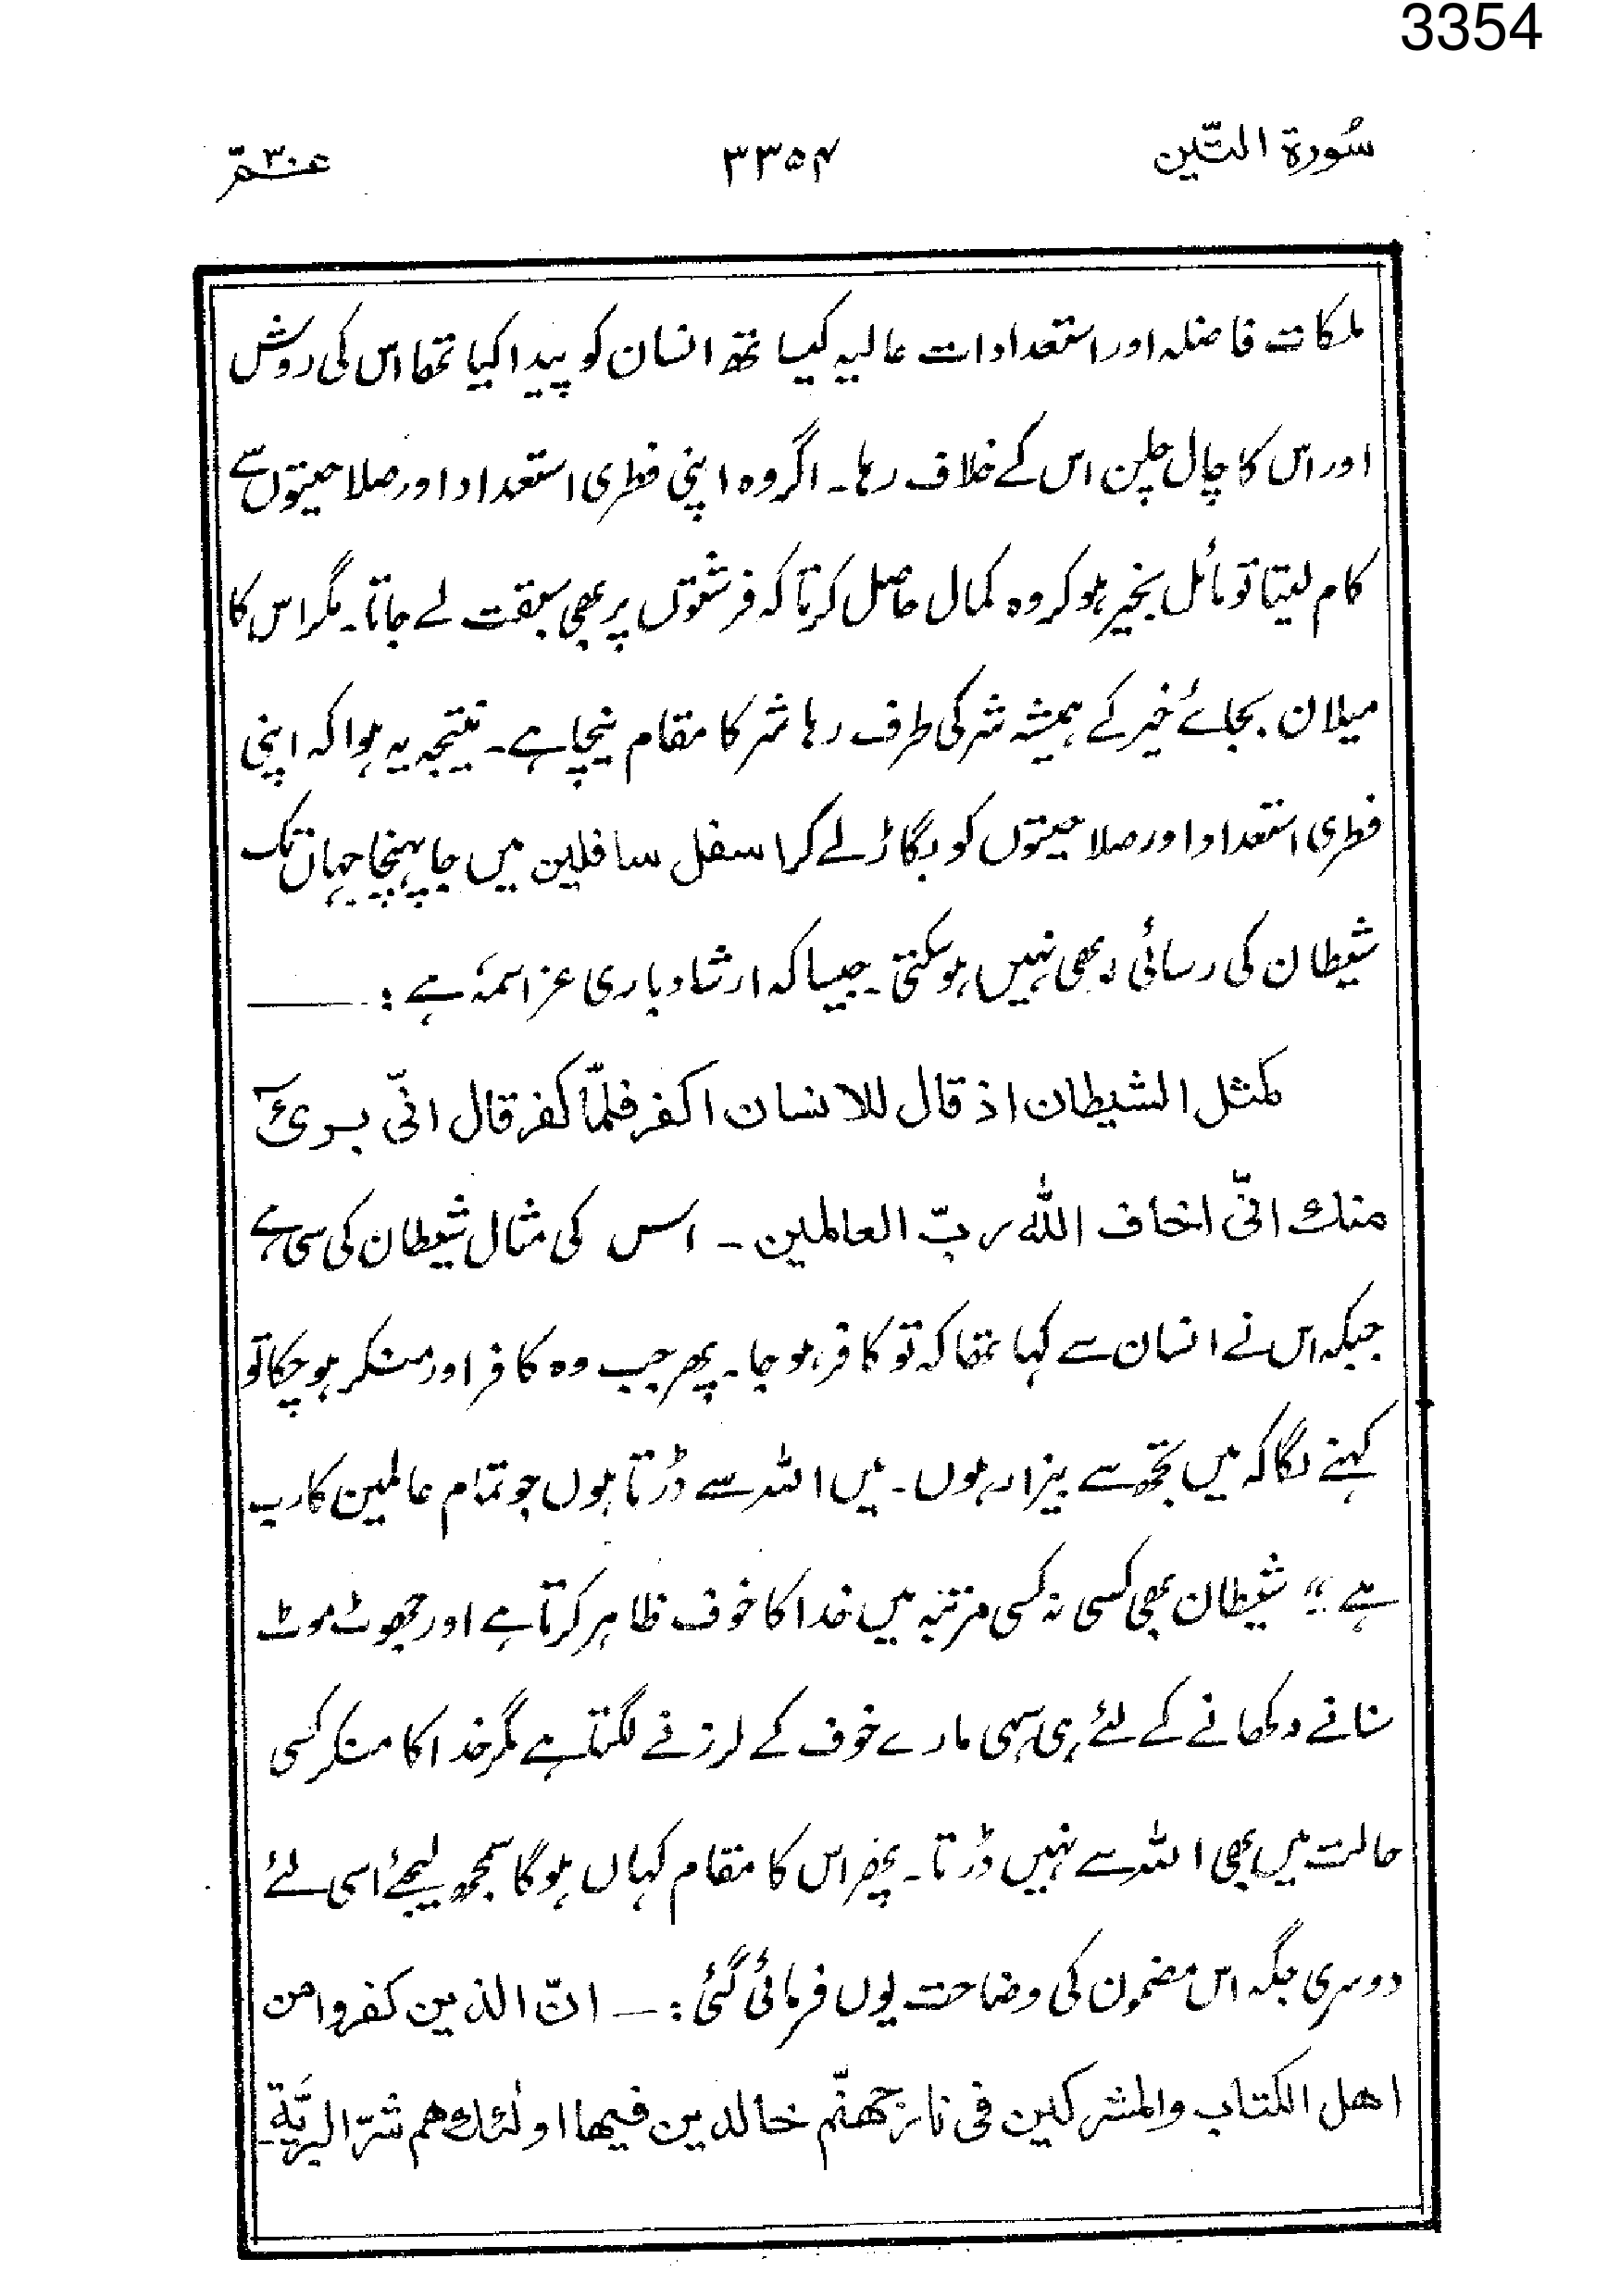 3354
سُورۃ التّین ۳۳۵۴ عمّ ۳۰
ملکات فاضلہ اور استعدادات عالیہ کیسا تھ انسان کو پیدا کیا تھا اس کی روش
اور اس کا چال چلن اس کے خلاف رہا۔ اگر وہ اپنی فطری استعداد اور صلاحیتوں سے
کام لیتا تو مائل بخیر ہو کر وہ کمال حاصل کرتا کہ فرشتوں پر بھی سبقت لے جاتا۔ مگر اس کا
میلان بجائے خیر کے ہمیشہ شر کی طرف رہا شر کا مقام نیچا ہے۔ نتیجہ یہ ہوا کہ اپنی
فطری استعداد اور صلاحیتوں کو بگاڑ لے کر اسفل سافلین میں جا پہنچا جہاں تک
شیطان کی رسائی بھی نہیں ہو سکتی۔ جیسا کہ ارشاد باری عز اسمہٗ ہے :ـــــــ
کمثل الشیطان اذ قال للانسان اکفر فلمّا کفر قال انّی برئ
منك انّی اخاف اللّٰہ ربّ العالمین ۔ اس کی مثال شیطان کی سی ہے
جبکہ اس نے انسان سے کہا تھا کہ تو کافر ہو جا۔ پھر جب وہ کافر اور منکر ہو چکا تو
کہنے لگا کہ میں تجھ سے بیزار ہوں۔ میں اللہ سے ڈرتا ہوں جو تمام عالمین کا رب
ہے‘‘ شیطان بھی کسی نہ کسی مرتبہ میں خدا کا خوف ظاہر کرتا ہے اور جھوٹ موٹ
سنانے دکھانے کے لئے ہی سہی مارے خوف کے لرزنے لگتا ہے مگر خدا کا منکر کسی
حالت میں بھی اللہ سے نہیں ڈرتا۔ پھر اس کا مقام کہاں ہو گا سمجھ لیجئے اسی لئے
دوسری جگہ اس مضمون کی وضاحت یوں فرمائی گئی :ــ انّ الذین کفروا من
اھل الکتاب والمشرکین فی نار جھنّم خالدین فیھا اولٰئك ھم شرّ البریّة۔